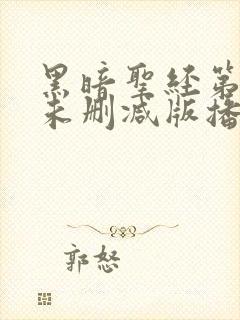 黑暗聖经第
未删减版播
郭怒